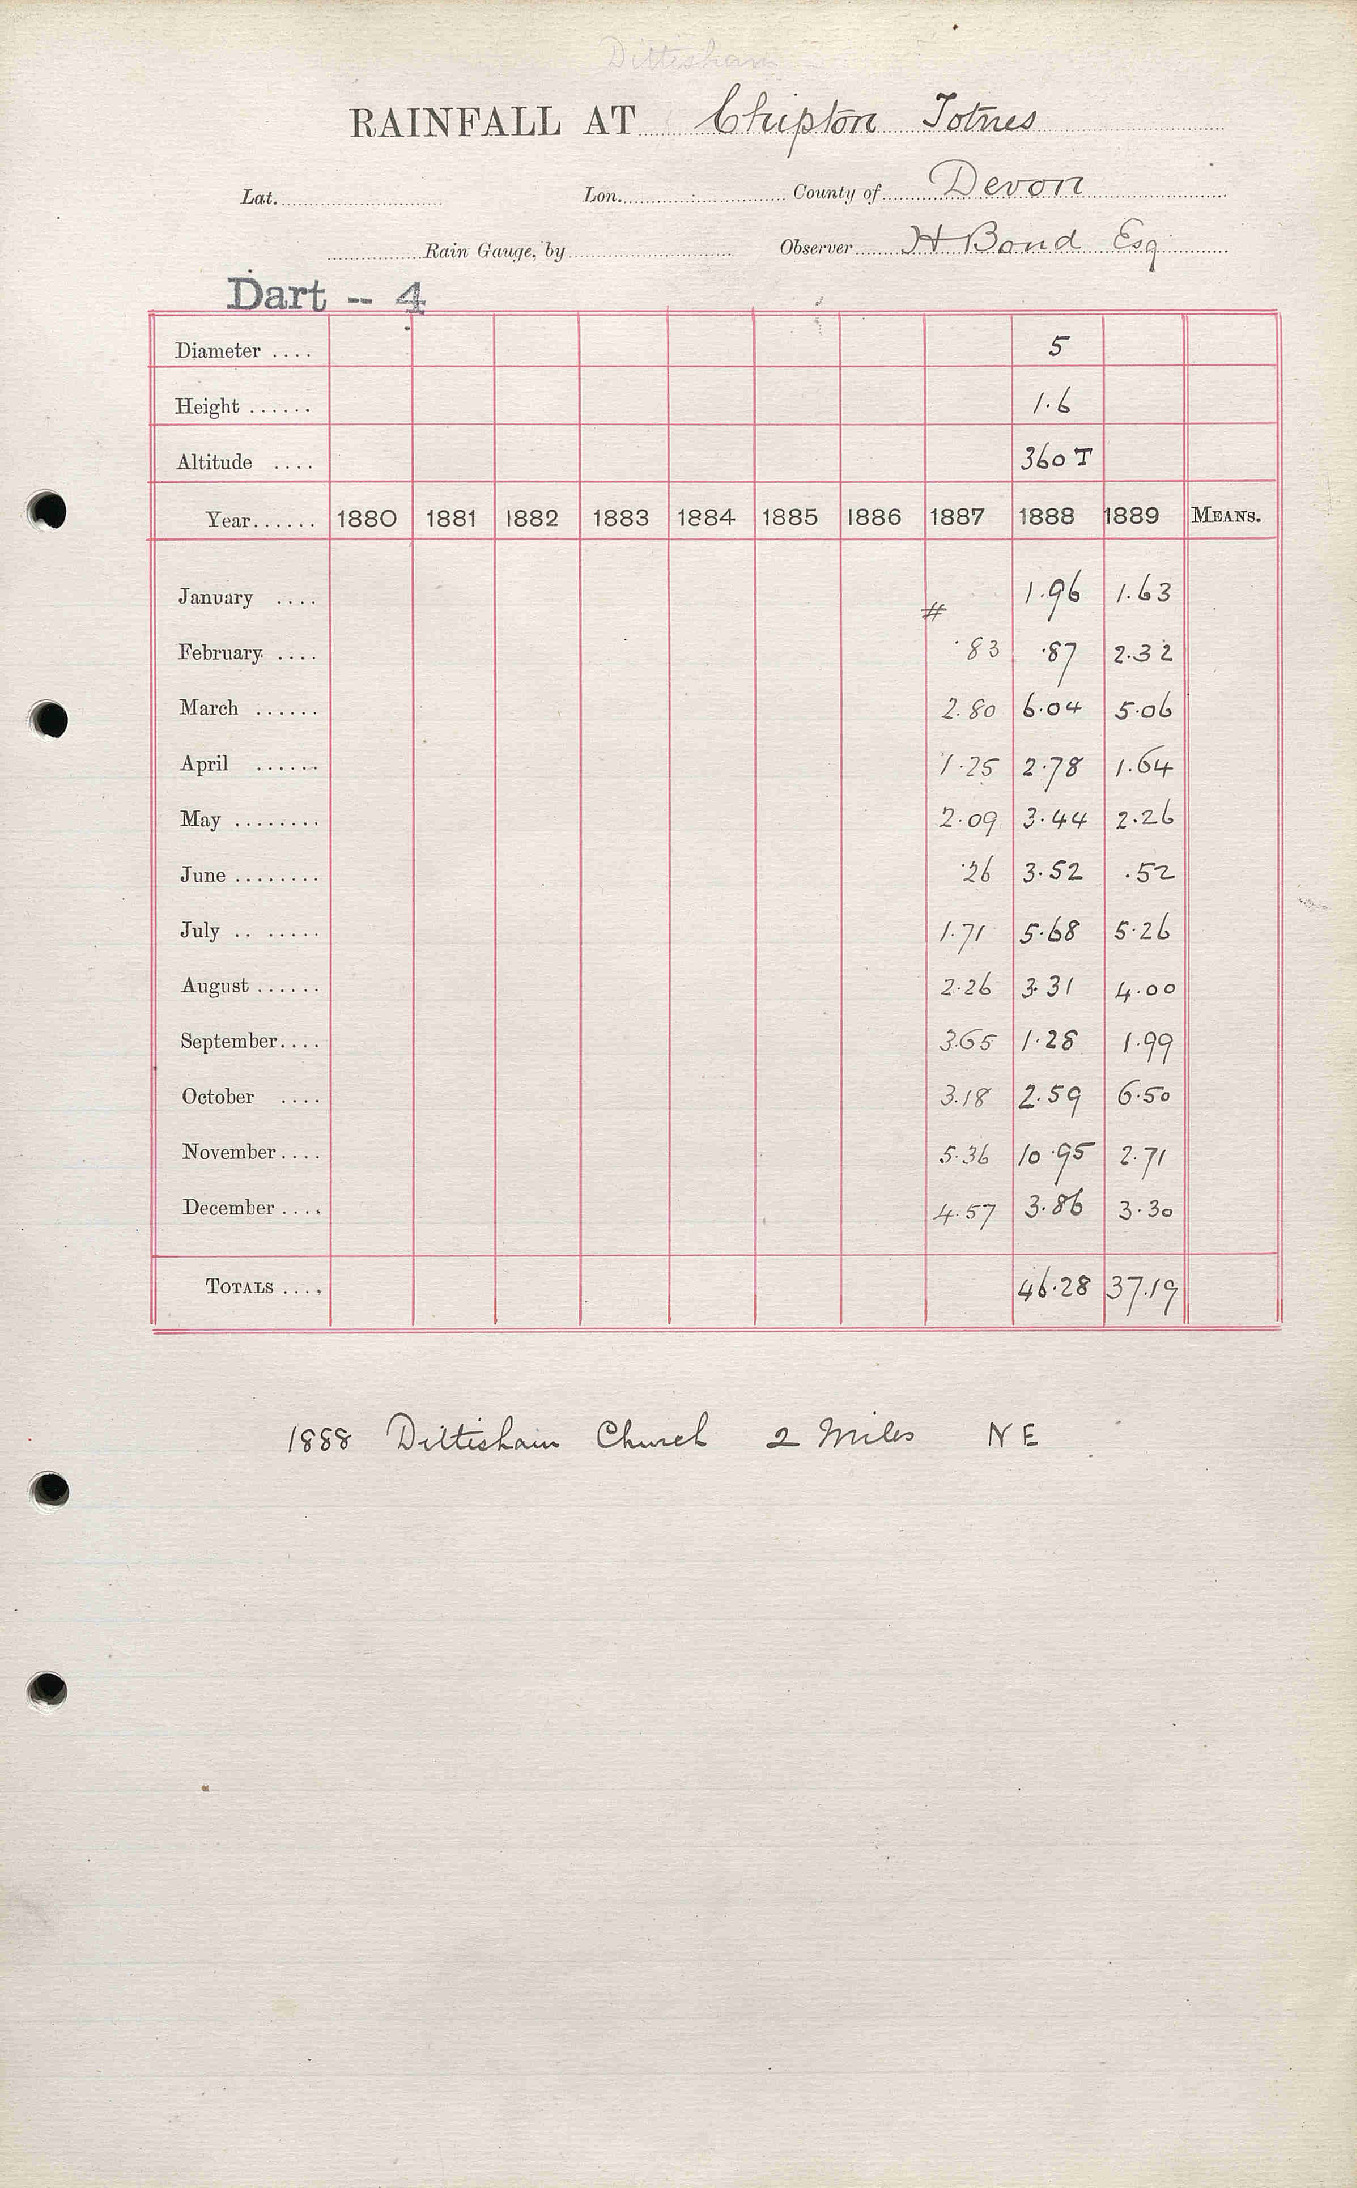 Dittisham
RAINFALL AT Chipton Totnes
Lat. Lon. County of Devon
Rain Gauge, by Observer H Bond Esq
Dart -- 4
Diameter .... 5
Height ...... 1.6
Altitude .... 360 T
Year...... 1880 1881 1882 1883 1884 1885 1886 1887 1888 1889 MEANS.
January .... # 1.96 1.63
February .... .83 .87 2.32
March ...... 2.80 6.04 5.06
April ...... 1.25 2.78 1.64
May ........ 2.09 3.44 2.26
June ........ .26 3.52 .52
July .. ..... 1.71 5.68 5.26
August ...... 2.26 3.31 4.00
September.... 3.65 1.28 1.99
October .... 3.18 2.59 6.50
November.... 5.36 10.95 2.71
December .... 4.57 3.86 3.30
TOTALS .... 46.28 37.19
1888 Dittisham Church 2 Miles NE